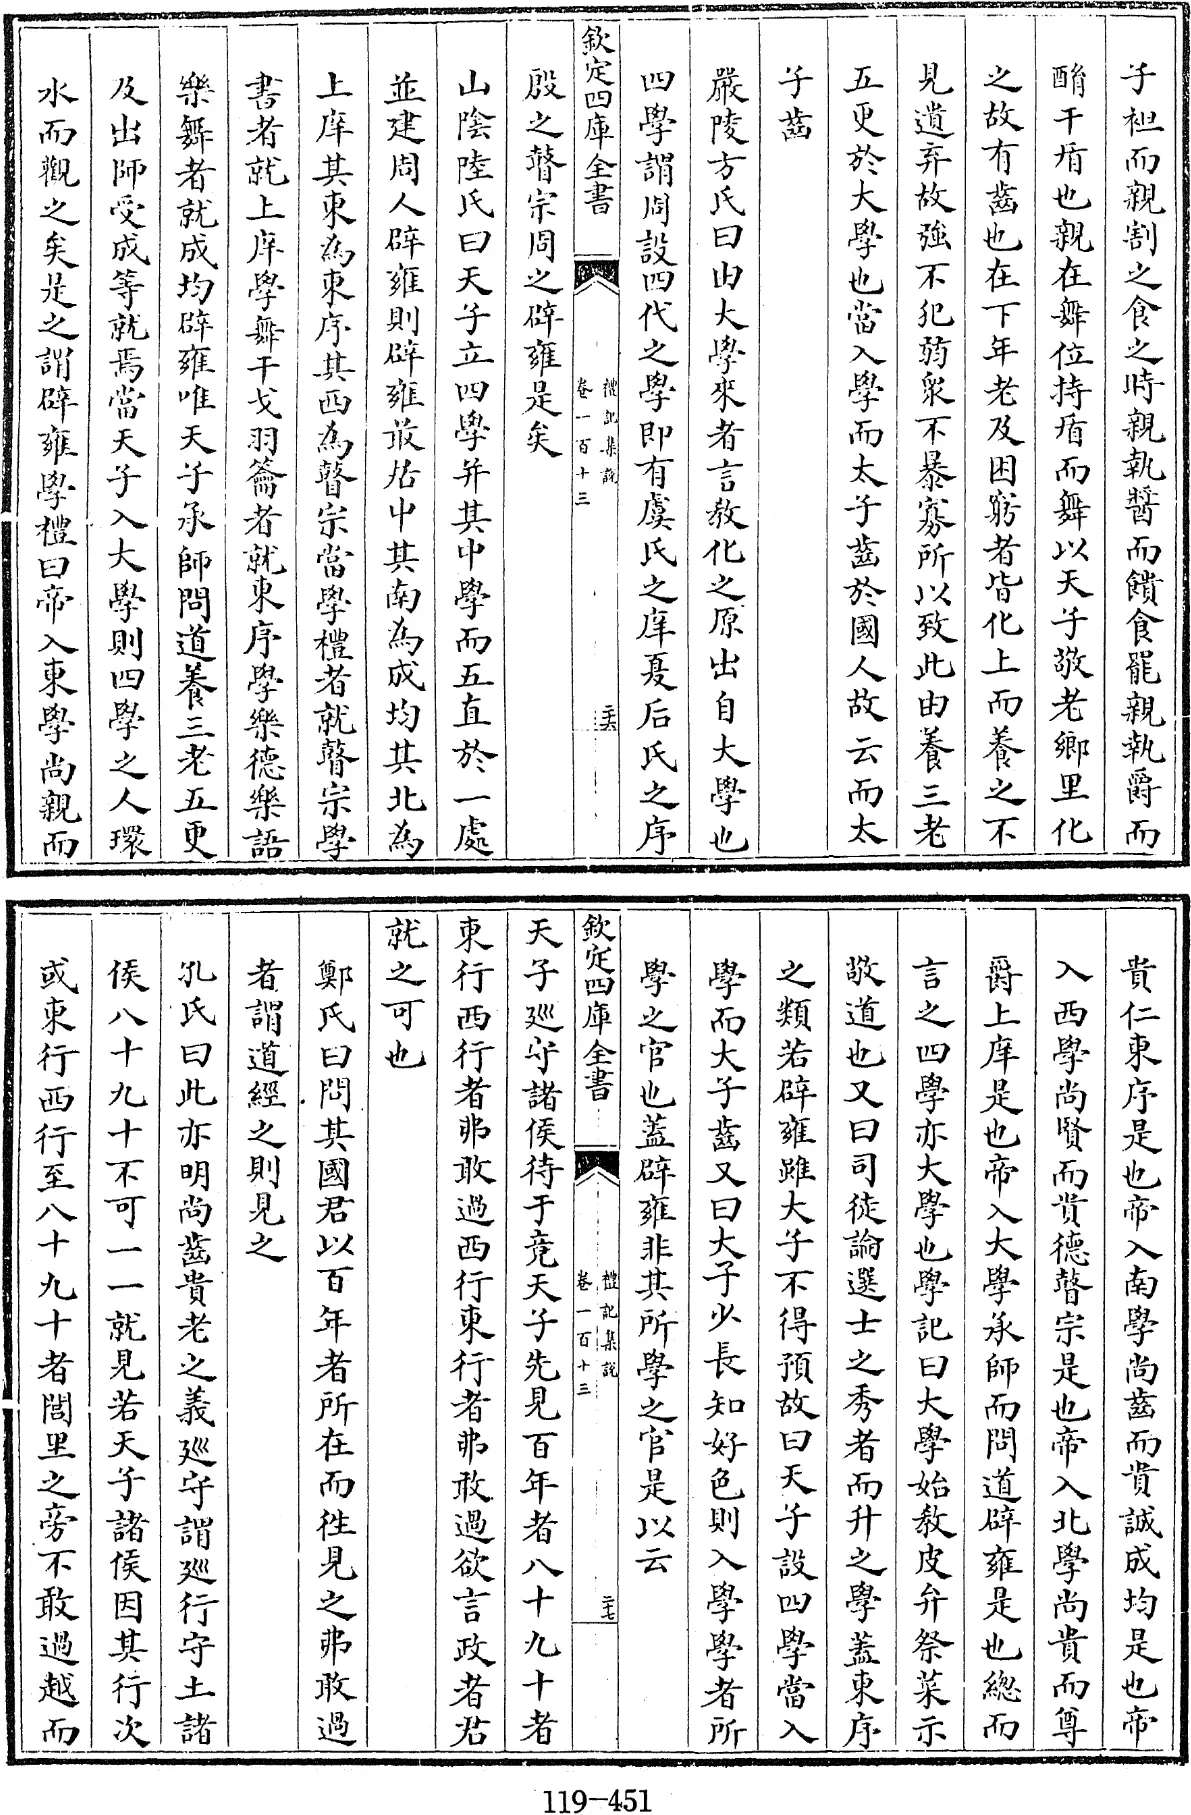 子袒而親割之食之時親執醬而饋食罷親執爵而
酳干盾也親在舞位持盾而舞以天子敬老鄉里化
之故有齒也在下年老及困窮者皆化上而養之不
見遺弃故強不犯弱衆不暴寡所以致此由養三老
五更於大學也當入學而太子齒於國人故云而太
子齒
嚴陵方氏曰由大學來者言教化之原出自大學也
四學謂周設四代之學即有虞氏之庠夏后氏之序
欽定四庫全書
禮記集說
卷一百十三
二十六
殷之瞽宗周之辟雍是矣
山陰陸氏曰天子立四學并其中學而五直於一處
並建周人辟雍則辟雍最居中其南為成均其北為
上庠其東為東序其西為瞽宗當學禮者就瞽宗學
書者就上庠學舞干戈羽籥者就東序學樂德樂語
樂舞者就成均辟雍唯天子承師問道養三老五更
及出師受成等就焉當天子入大學則四學之人環
水而觀之矣是之謂辟雍學禮曰帝入東學尚親而
貴仁東序是也帝入南學尚齒而貴誠成均是也帝
入西學尚賢而貴德瞽宗是也帝入北學尚貴而尊
爵上庠是也帝入大學承師而問道辟雍是也總而
言之四學亦大學也學記曰大學始教皮弁祭菜示
敬道也又曰司徒論選士之秀者而升之學蓋東序
之類若辟雍雖大子不得預故曰天子設四學當入
學而大子齒又曰大子少長知好色則入學學者所
學之官也蓋辟雍非其所學之官是以云
欽定四庫全書
禮記集說
卷一百十三
二十七
天子廵守諸侯待于竟天子先見百年者八十九十者
東行西行者弗敢過西行東行者弗敢過欲言政者君
就之可也
鄭氏曰問其國君以百年者所在而徃見之弗敢過
者謂道經之則見之
孔氏曰此亦明尚齒貴老之義廵守謂廵行守土諸
侯八十九十不可一一就見若天子諸侯因其行次
或東行西行至八十九十者閭里之旁不敢過越而
119-451